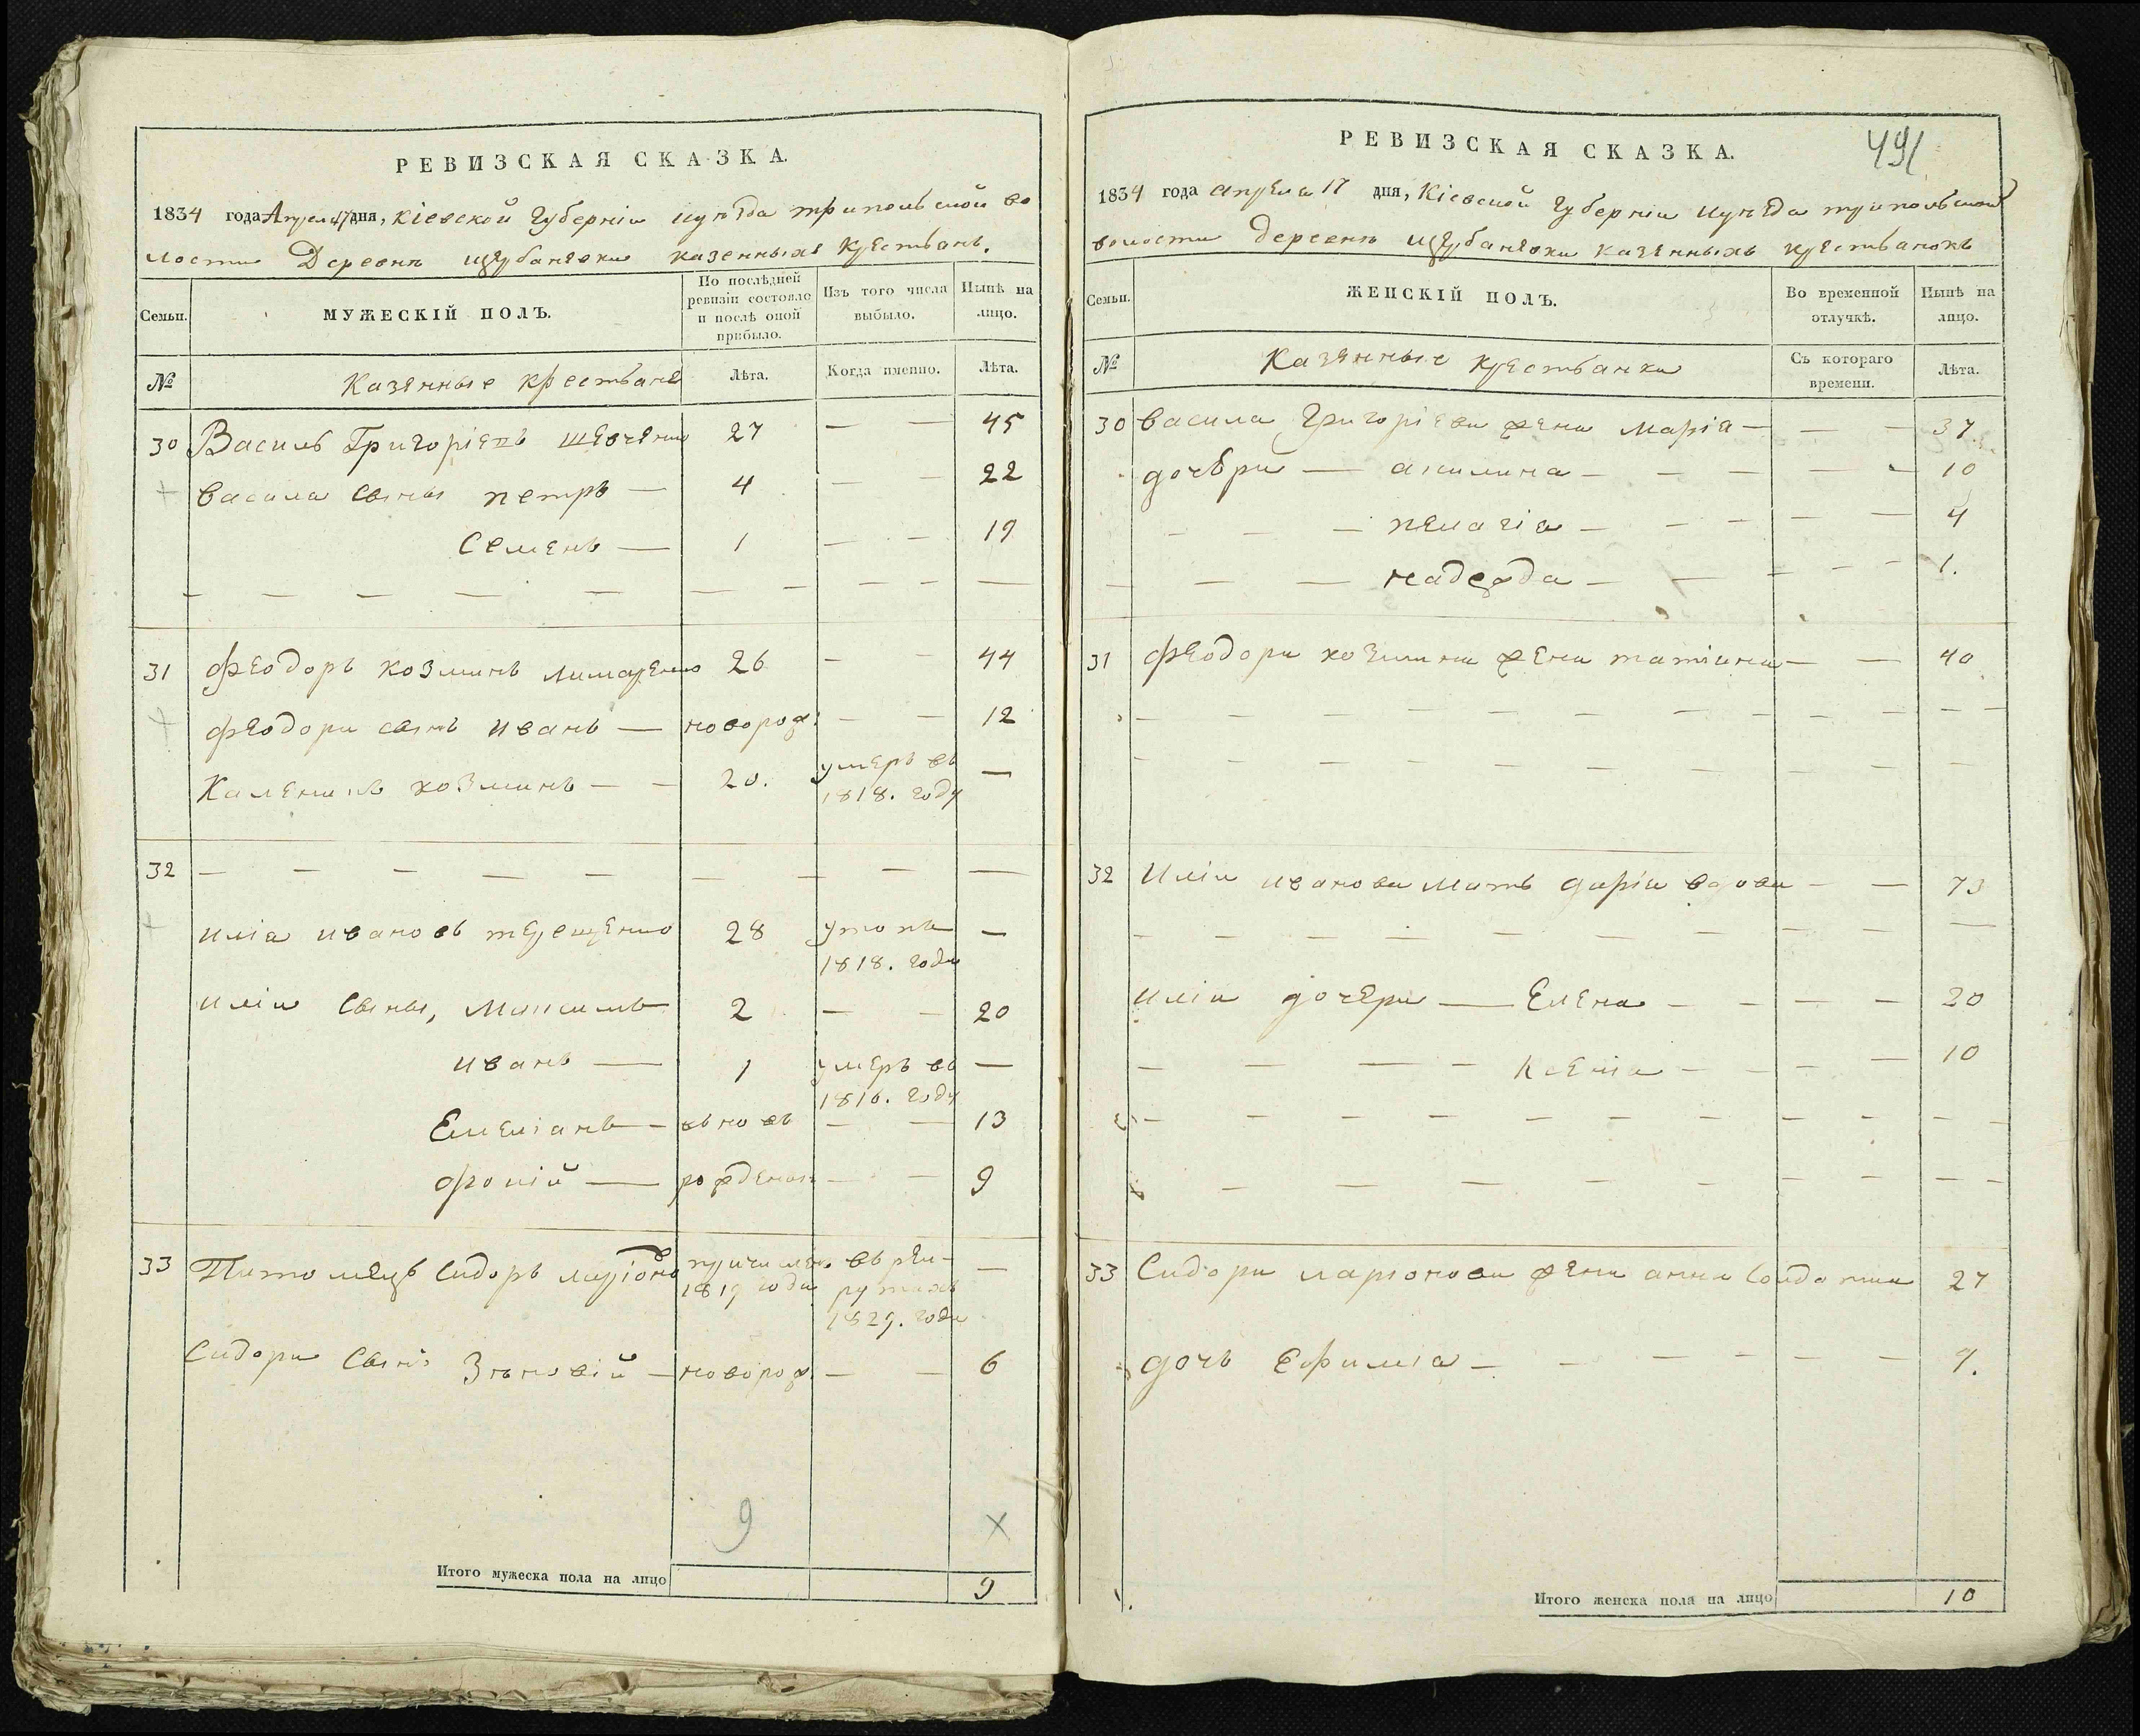 РЕВИЗСКАЯ СКАЗКА.
1834 года Апреля 17 дня, Кіевской Губерніи и уѣзда трипольской во
лости Деревнѣ щербаневки казенныхъ Крестьянъ.
Семьи.
МУЖЕСКІЙ ПОЛЪ.
По послѣдней ревизіи состояло и послѣ оной прибыло.
Изъ того числа выбыло.
Нынѣ на лицо.
№
Казенные крестьяне
Лѣта.
Когда именно.
Лѣта.
30 Василь Григоріевъ шевченко 27 — — 45
Васила сыны петръ — 4 — — 22
Семенъ — 1 — — 19
31 Феодоръ козминъ лимаренко 26 — — 44
Феодора сынъ иванъ — новорож: — — 12
Каленикъ козминъ — — 20. умеръ въ —
1818. году
32 — — — — — — — — —
иліа ивановъ терещенко 28 утопъ —
1818. года
иліи сыны, Максимъ 2 — — 20
иванъ — 1 умеръ въ —
1816. году
Емеліанъ — вновь — — 13
фокій — рождены — — 9
33 Питомецъ Сидоръ ларіоно в причислен. въ рек- —
1819 года рутахъ
1829. года
Сидора сынъ Зѣновій — новорож. — — 6
9
×
Итого мужеска пола на лицо 9
РЕВИЗСКАЯ СКАЗКА.
491
1834 года апреля 17 дня, Кіевской Губерніи и уѣзда трипольской
волости деревнѣ щербаневки казенныхъ крестьянокъ
Семьи.
ЖЕНСКІЙ ПОЛЪ.
Во временной отлучкѣ.
Нынѣ на лицо.
№
Казенные крестьянки
Съ котораго времени.
Лѣта.
30 Васила Григоріева жена Маріа — — — 37.
дочери — акилина — — — — — 10
— — — пелагіа — — — — — 4
— — — надежда — — — — — 1.
31 Феодора козмина жена татіана — — 40
32 Иліи иванова мать даріа вдова — — 73
иліи дочери — Елена — — — — 20
— — — — ксеніа — — — — 10
33 Сидора ларіонова жена анна Солдатка 27
дочь Ефиміа — — — — — — 9.
Итого женска пола на лицо 10